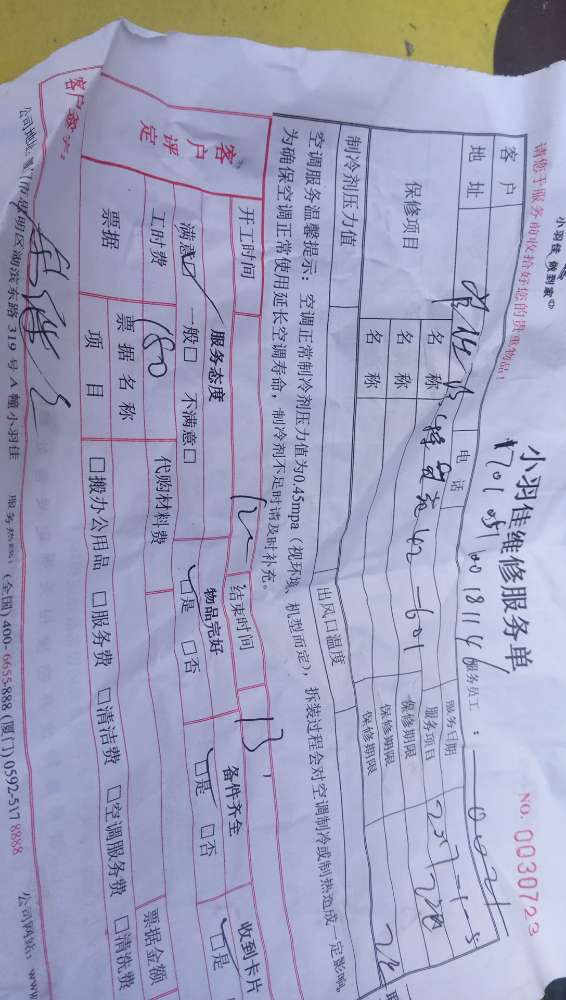 小羽佳 做到家
小羽佳维修服务单
NO. 0030723
请您于服务前收拾好您的贵重物品!
服务员工:
客户
电话
服务日期
地址
服务项目
保修项目
名称
保修期限
名称
保修期限
名称
保修期限
制冷剂压力值
出风口温度
空调服务温馨提示:空调正常制冷剂压力值为0.45mpa(视环境、机型而定),拆装过程会对空调制冷或制热造成一定影响。
为确保空调正常使用延长空调寿命,制冷剂不足时请及时补充。
开工时间 12
结束时间 13
客户评定
服务态度
物品完好
备件齐全
收到卡片
满意☑ 一般□ 不满意□
☑是 □否
☑是 □否
☑是
工时费 180
代购材料费
票据金额
票据
票据名称
项目
□搬办公用品 □服务费 □清洁费 □空调服务费 □清洗费
公司地址: 湖滨东路319号A幢小羽佳
服务热线: (全国)400-6655-888 (厦门)0592-517 8888
公司网站: www